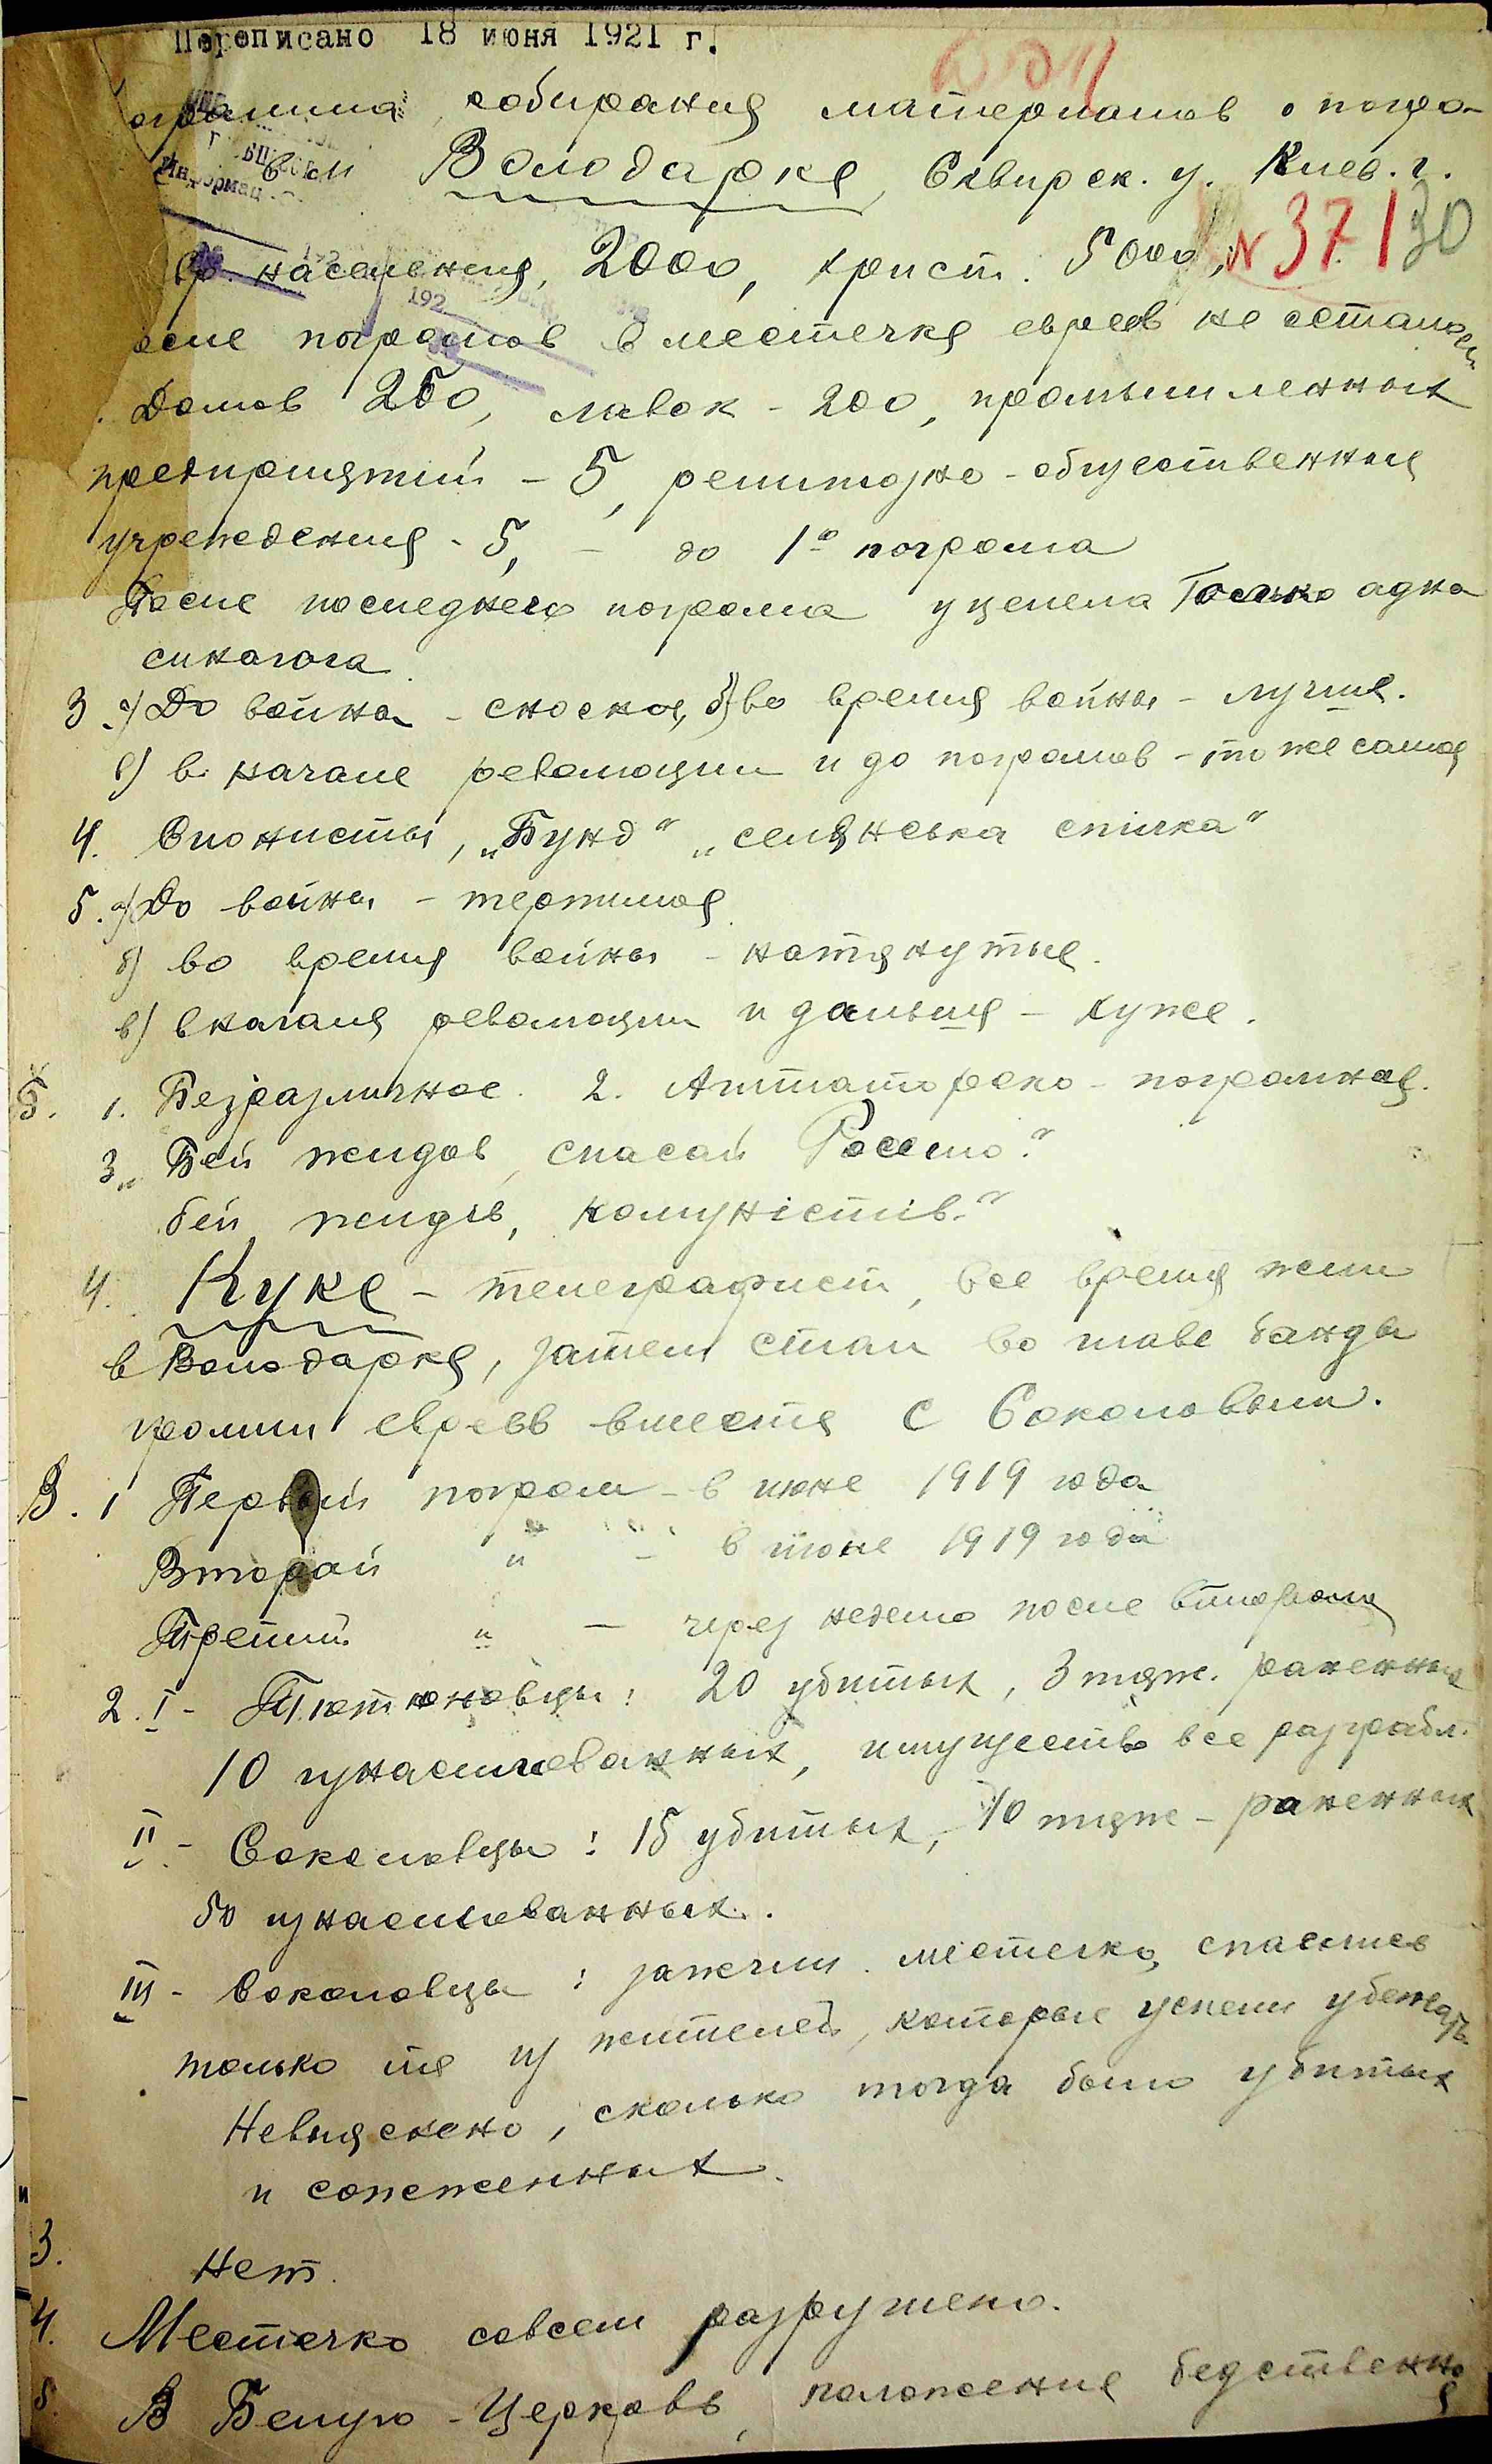 Переписано 18 июня 1921 г.
ограмма собирания материалов о погро-
в м Володарке, Сквирск. у. Киев. г.
Информац
N 37. 130
Евр. населения, 2000, христ. 5000,
192
осле погромов в местечке евреев не осталось
Домов 250, лавок - 200, промышленных
предприятий - 5, религиозно-общественныя
учреждения - 5, - до 1го погрома
После последнего погрома уцелела Только адна
синагога
3. а) До войны - сносное, б) во время войны - лучше.
в) в начале революции и до погромов - то же самое
4. Сионисты, „Бунд" „селянська спілка"
5. а) До войны - терпимоя
б) во время войны - натянутые.
в) в началя революции и дальше - хуже.
Б. 1. Безразличное. 2. Агитаторско-погромная.
3. „Бей жидов, спасай Россию."
бей жидів, комуністів."
4. Куке - телеграфист, все время жил
в Володарке, затем стал во главе банды
громил евреев вместе с Соколовым.
В. 1 Первый погром - в июне 1919 года
Второй " - в июле 1919 года
Третий " - через неделю после второго
2. I - Тютюновцы: 20 убитых, 3 тяж. раненных
10 изнасилованных, имущество все разграбл.
II - Соколовцы: 15 убитых, 10 тяже - раненных
50 изнасилованных.
III - Соколовцы: зажгли местечко, спаслись
только те из жителей, которые успели убежать.
Невыяснено, сколько тогда было убитых
и сожженных.
3. Нет.
4. Местечко совсем разрушено.
5. В Белую-Церковь, положение бедственное